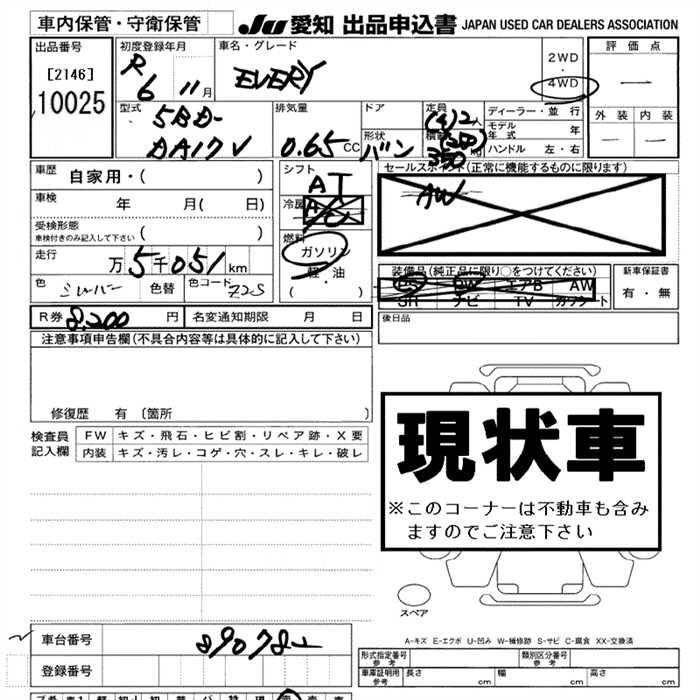 車内保管・守衛保管 JU 愛知 出品申込書 JAPAN USED CAR DEALERS ASSOCIATION
出品番号 [2146] 10025
初度登録年月 R 6 11月
車名・グレード EVERY
2WD・4WD
評価点 —
外装 — 内装 —
型式 5BD-DA17V
排気量 0.65 CC
ドア
形状 バン
定員 (4)2人
積載 (200) 350
ディーラー・並行
モデル年式 年
ハンドル 左・右
車歴 自家用・( )
車検 年 月( 日)
受検形態 車検付きのみ記入して下さい ( )
走行 万5千051km
色 シルバー 色替 色コード Z2S
シフト AT
冷房 AC
燃料 ガソリン・軽・油 ( )
セールスポイント(正常に機能するものに限ります)
AW
装備品(純正品に限り○をつけてください)
PS PW エアB AW
SR ナビ TV カワシート
新車保証書 有・無
R券 8,200円 名変通知期限 月 日
後日品
注意事項申告欄(不具合内容等は具体的に記入して下さい)
修復歴 有〔箇所 〕
検査員記入欄
FW キズ・飛石・ヒビ割・リペア跡・X要
内装 キズ・汚レ・コゲ・穴・スレ・キレ・破レ
現状車
※このコーナーは不動車も含み
ますのでご注意下さい
スペア
A-キズ E-エクボ U-凹み W-補修跡 S-サビ C-腐食 XX-交換済
車台番号 890782
登録番号
形式指定番号 参考 類別区分番号 参考
車庫証明用 参考 長さ cm 幅 cm 高さ cm